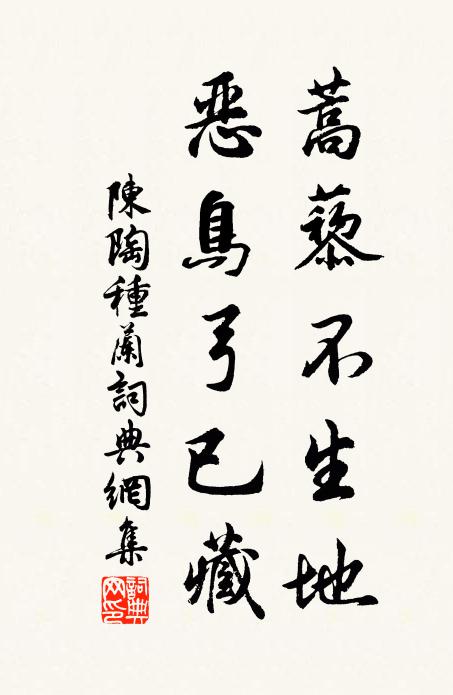 蒿藜不生地
惡鳥弓已藏
陳陶種蘭詞典網集
詞典网印